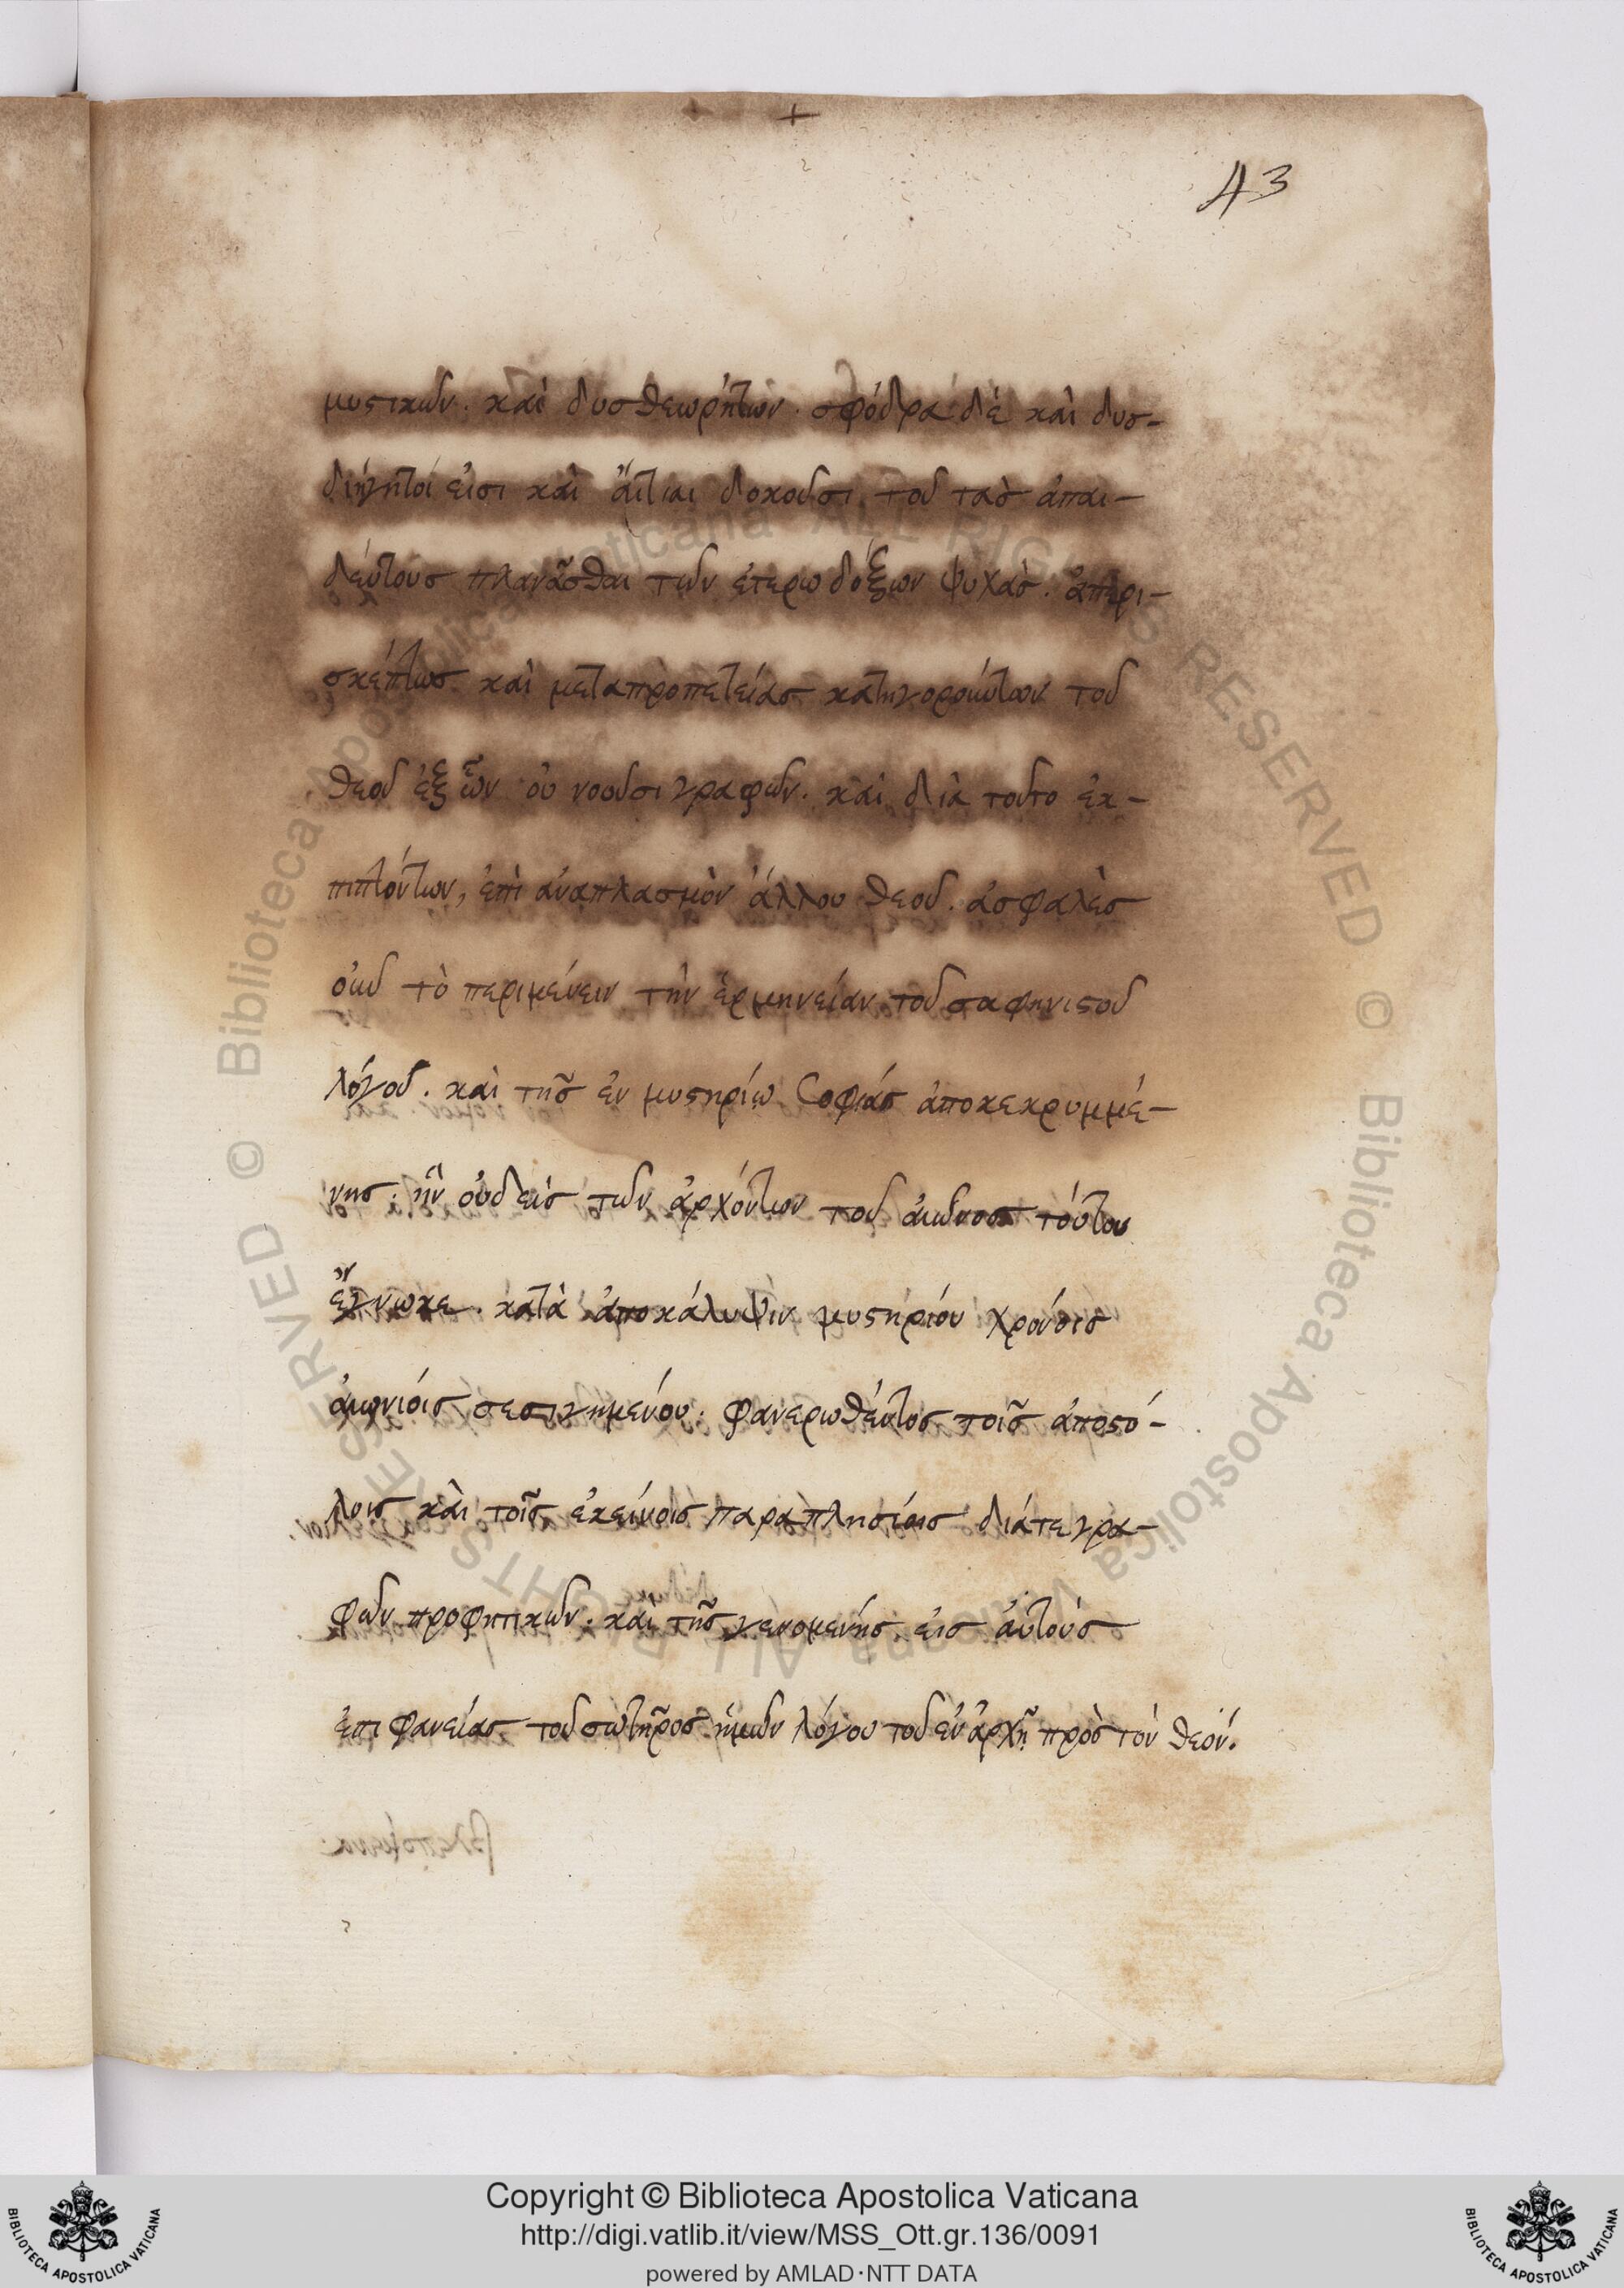 43
μυστικῶν. καὶ δυσθεωρήτων. σφόδρα δὲ καὶ δυσ-
διήγητοί εἰσι καὶ ἄιτιαι δοκοῦσι τοῦ τὰσ ἀπαι-
δεύτουσ πλανᾶσθαι τῶν ἑτεροδόξων ψυχὰσ. ἀπερι-
σκέπτωσ καὶ μεταπροπετείασ κατηγορούντων τοῦ
θεοῦ ἐξ ὧν οὐ νοοῦσι γραφῶν. καὶ διὰ τοῦτο ἐκ-
πιπτόντων, ἐπὶ ἀναπλασμὸν ἄλλου θεοῦ. ἀσφαλὲσ
οὖν τὸ περιμένειν τὴν ἑρμηνείαν τοῦ σαφηνιστοῦ
λόγου. καὶ τῆσ ἐν μυστηρίω Σοφίασ ἀποκεκρυμμέ-
νησ. ἣν οὐδεὶσ τῶν ἀρχόντων τοῦ ἀιῶνοσ τούτου
ἔγνωκε. κατὰ ἀποκάλυψιν μυστηρίου χρόνοισ
ἀιωνίοισ σεσιγημένου. φανερωθέντοσ τοῖσ ἀποστό-
λοισ καὶ τοῖσ ἐκείνοισ παραπλησίοισ διάτεγρα-
φῶν προφητικῶν. καὶ τῆσ γενομένησ εἰσ ἀυτοὺσ
ἐπιφανείασ τοῦ σωτῆροσ ἡμῶν λόγου τοῦ ἐν ἀρχῆ πρὸσ τὸν θεόν.
Copyright © Biblioteca Apostolica Vaticana
http://digi.vatlib.it/view/MSS_Ott.gr.136/0091
powered by AMLAD·NTT DATA
BIBLIOTECA APOSTOLICA VATICANA
BIBLIOTECA APOSTOLICA VATICANA
© Biblioteca Apostolica Vaticana ALL RIGHTS RESERVED © Biblioteca Apostolica Vaticana ALL RIGHTS RESERVED